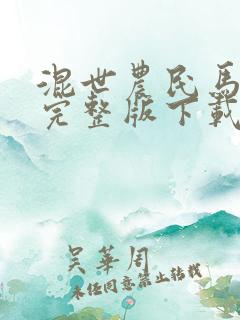 混世農民馬
完整版下載
吴華周
未经同意禁止转载